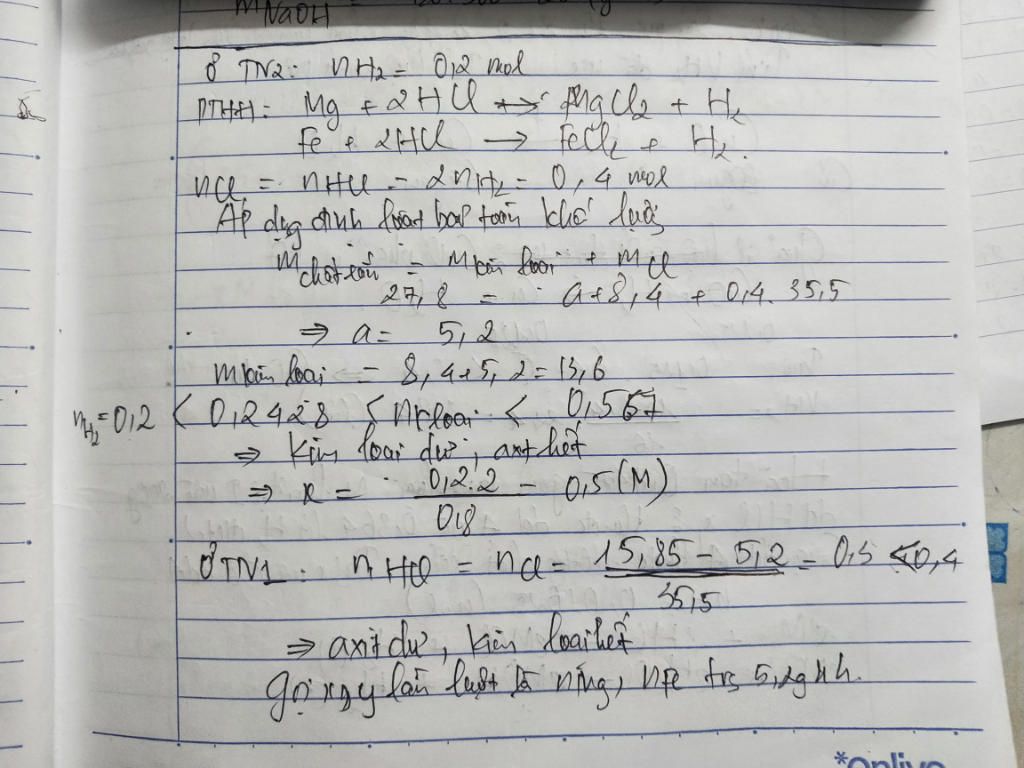 mNaOH =
Ở TN2: nH2 = 0,2 mol
PTHH: Mg + 2HCl → MgCl2 + H2
Fe + 2HCl → FeCl2 + H2.
nCl = nHCl = 2nH2 = 0,4 mol
Áp dụng định luật bảo toàn khối lượng
mchất rắn = mkim loại + mCl
27,8 = a+8,4 + 0,4.35,5
⇒ a = 5,2
mkim loại = 8,4+5,2=13,6
nH2=0,2 < 0,2428 < nkloại < 0,567
⇒ Kim loại dư, axit hết
⇒ x = 0,2.2 / 0,8 = 0,5 (M)
Ở TN1: nHCl = nCl = 15,85 – 5,2 / 35,5 = 0,3 < 0,4
⇒ axit dư, kim loại hết
Gọi x,y lần lượt là nMg, nFe trg 5,2g hh.
*onlive